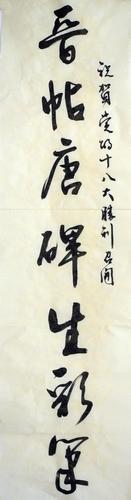 祝贺党的十八大胜利召开
晋帖唐碑生彩笔